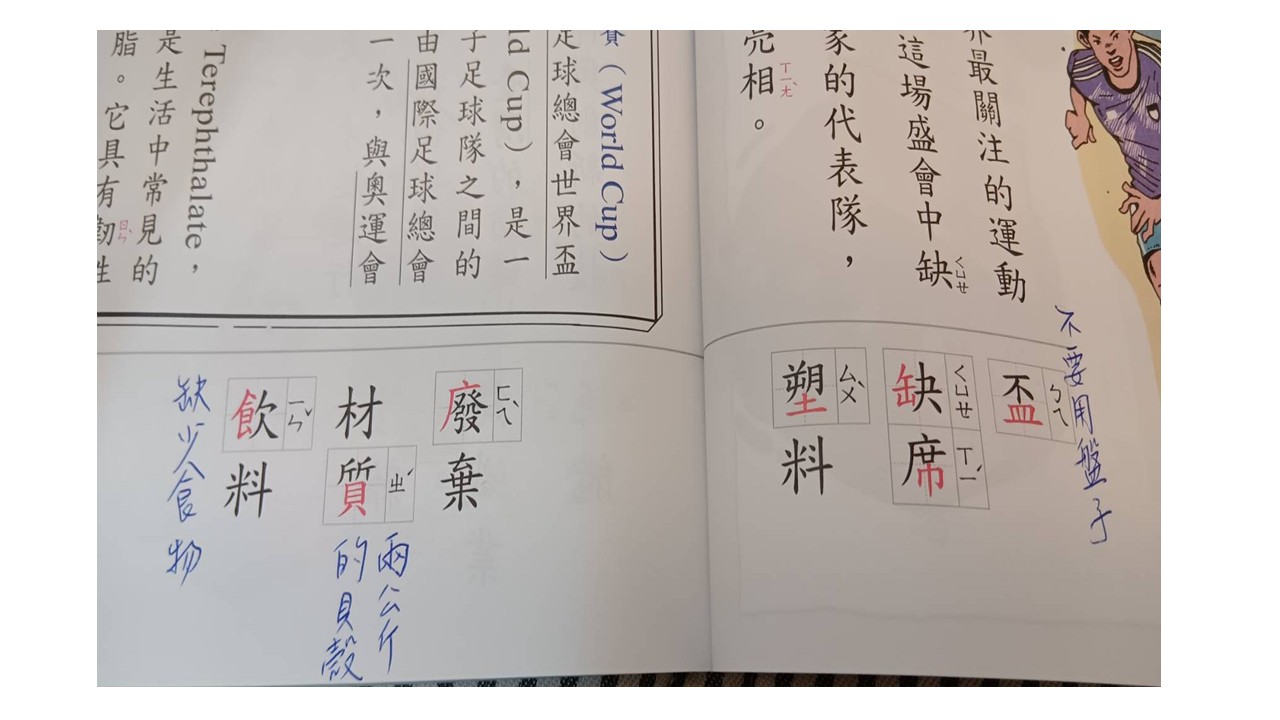 界最關注的運動
這場盛會中缺ㄑㄩㄝ
家的代表隊，
亮相ㄒㄧㄤˋ。
不要用盤子
盃ㄅㄟ
缺ㄑㄩㄝ席ㄒㄧˊ
塑ㄙㄨˋ料
賽（World Cup）
足球總會世界盃
ld Cup），是一
子足球隊之間的
由國際足球總會
一次，與奧運會
Terephthalate，
是生活中常見的
脂。它具有韌ㄖㄣˋ性
廢ㄈㄟˋ棄
材質ㄓˊ
兩公斤
的貝殼
飲ㄧㄣˇ料
缺少食物